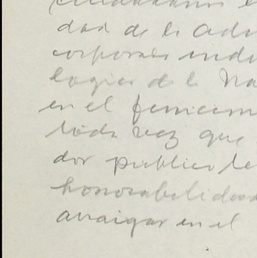 dad de la adm
corporales indu
logica de la Na
en el
toda vez que
dor publico le
honorabilidad
arraigar en el